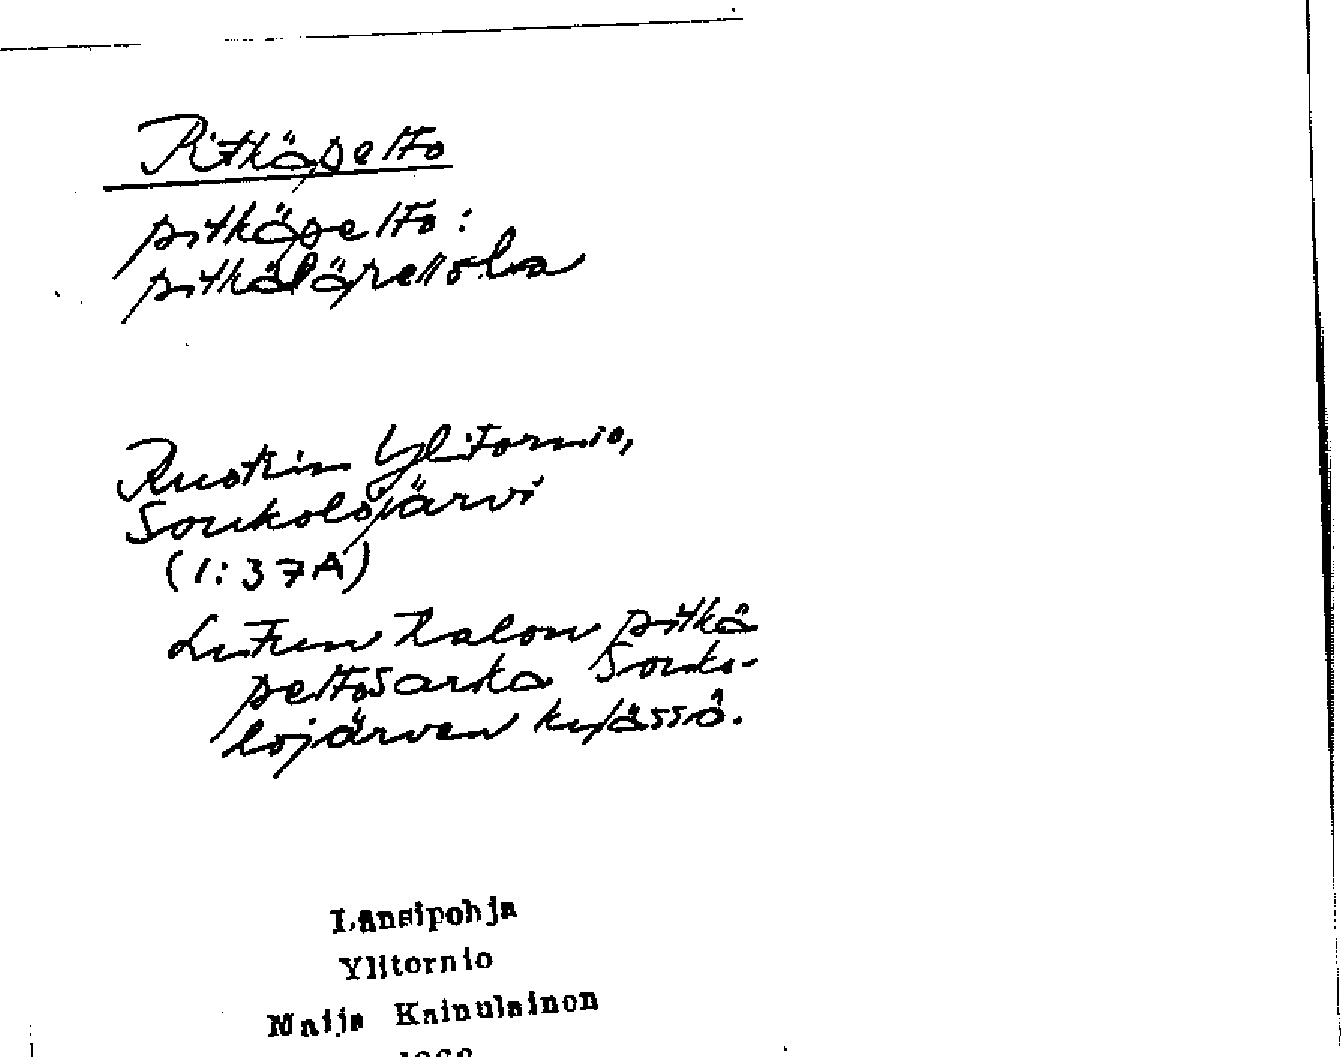 Pitkäpelto
pitkäpelto:
pitkäläpellola
Ruotsin Ylitornio,
Soukolojärvi
(1:37A)
talon pitkä
peltosarka Souko-
lojärven kylässä.
Länsipohja
Ylitornio
Maija Kainulainen